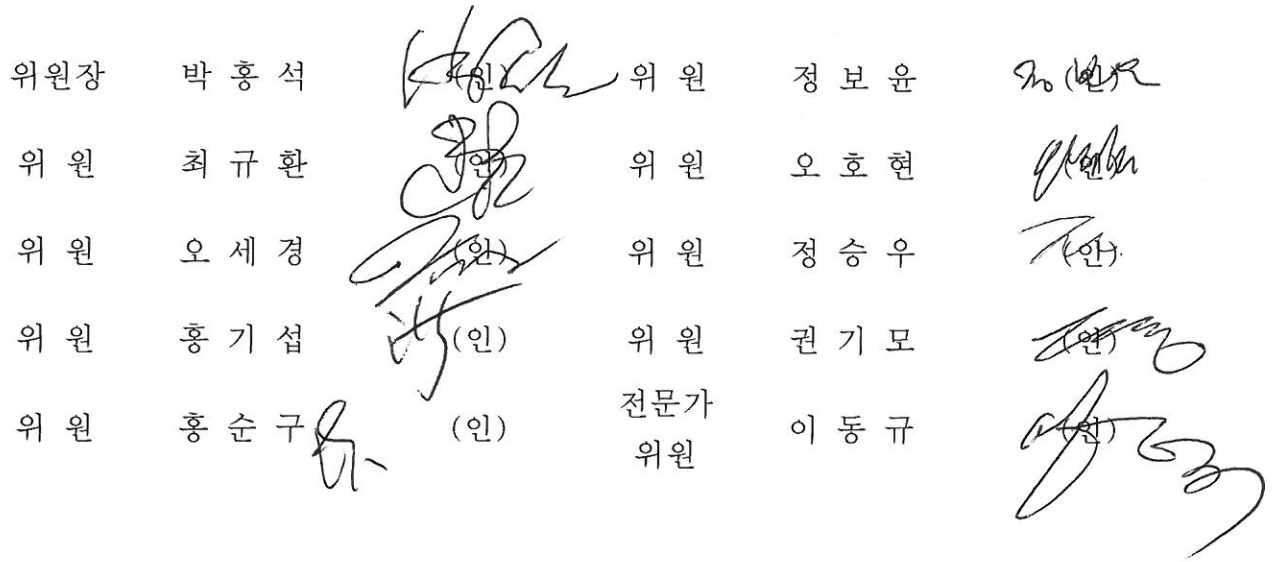 위원장 박 홍 석 (인) 위 원 정 보 윤 (인)
위 원 최 규 환 (인) 위 원 오 호 현 (인)
위 원 오 세 경 (인) 위 원 정 승 우 (인)
위 원 홍 기 섭 (인) 위 원 권 기 모 (인)
위 원 홍 순 구 (인) 전문가 위원 이 동 규 (인)